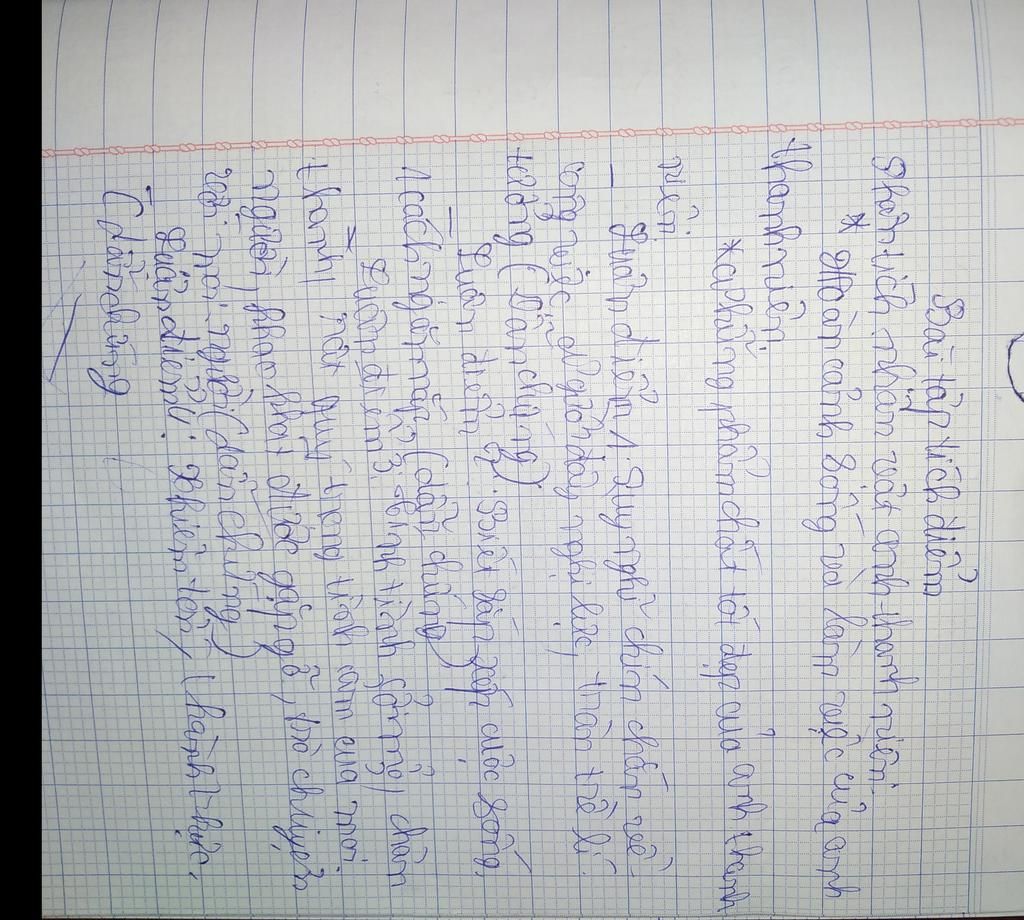 Bài tập lích điểm
Phân tích nhân vật anh thanh niên
* Hoàn cảnh sống và làm việc của anh
thanh niên
* những phẩm chất tốt đẹp của anh thanh
niên
- Luận điểm 1: Suy nghĩ chín chắn về
công việc đầy nghị lực, tràn trề lí
tưởng (dẫn chứng)
- Luận điểm 2: Biết sắp xếp cuộc sống
1 cách ngăn nắp (dẫn chứng)
- Luận điểm 3: tính tình cởi mở, chân
thành, rất quý trọng tình cảm của mọi
người, khao khát được gặp gỡ, trò chuyện
với mọi người (dẫn chứng)
- Luận điểm 4: Khiêm tốn, thành thực.
(dẫn chứng